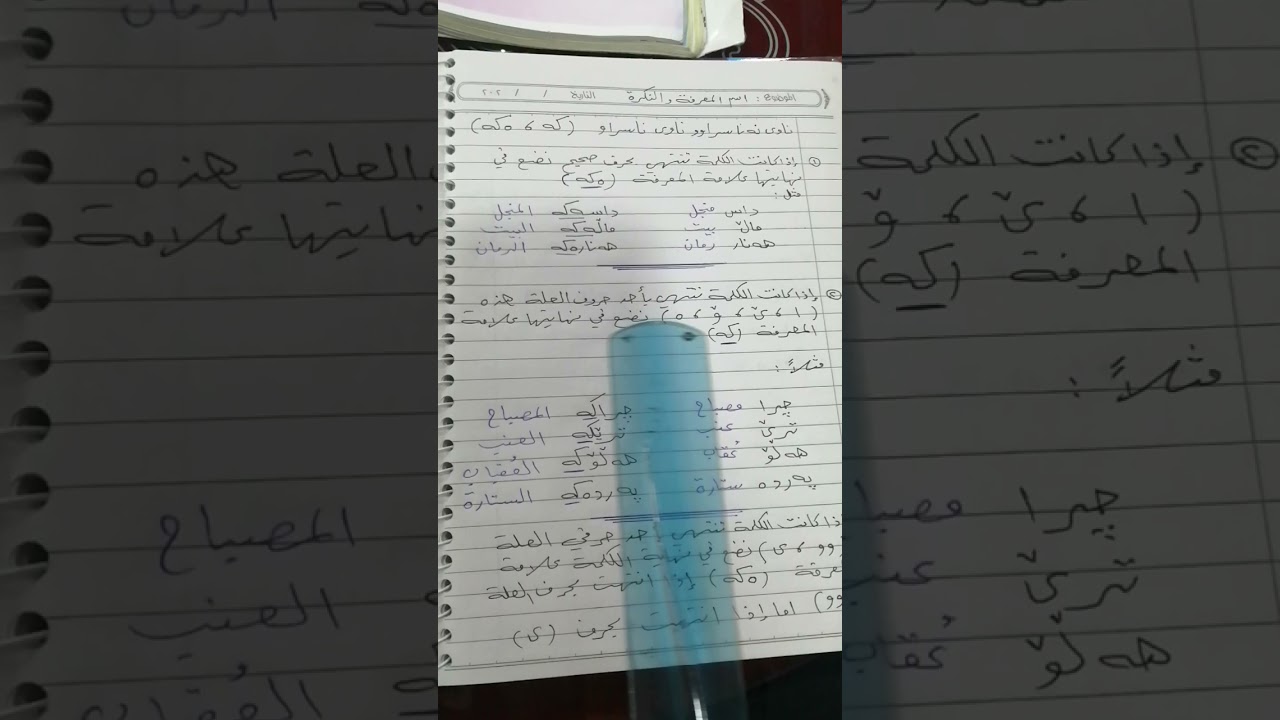 الموضوع : اسم المعرفة والنكرة التاريخ / / ٢٠٢
ناوى نەناسراوو ناوى ناسراو (كە ، ەكە)
① إذا كانت الكلمة تنتهي بحرف صحيح نضع في
نهايتها علامة المعرفة (ەكە)
مثل :
داس منجل داسەكە المنجل
ماڵ بيت ماڵەكە البيت
هەنار رمان هەنارەكە الرمان
② إذا كانت الكلمة تنتهي بأحد حروف العلة هذه
( ا ، ێ ، ۆ ، ە ) نضع في نهايتها علامة
المعرفة (كە)
مثلاً :
چرا مصباح چراكە المصباح
ترێ عنب ترێكە العنب
هەڵۆ عُقاب هەڵۆكە العُقاب
پەردە ستارة پەردەكە الستارة
ذا كانت الكلمة تنتهي بأحد حرفي العلة
وو ، ى) نضع في نهاية الكلمة علامة
معرفة (ەكە) إذا انتهت بحرف العلة
وو) اما إذا انتهت بحرف (ى)